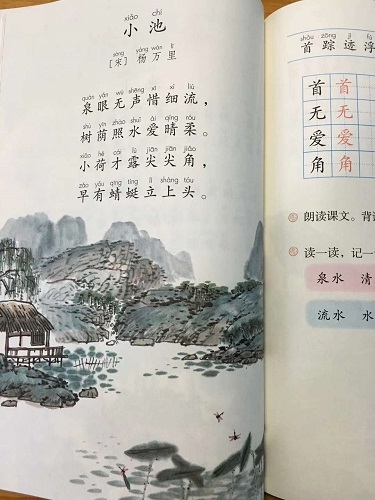 xiǎo chí
小池
sòng yáng wàn lǐ
[宋] 杨万里
quán yǎn wú shēng xī xì liú
泉眼无声惜细流，
shù yīn zhào shuǐ ài qíng róu
树荫照水爱晴柔。
xiǎo hé cái lù jiān jiān jiǎo
小荷才露尖尖角，
zǎo yǒu qīng tíng lì shàng tóu
早有蜻蜓立上头。
shǒu zōng jì fú
首踪迹浮
首 首
无 无
爱 爱
角 角
朗读课文。背
读一读，记一
泉水 清
流水 水